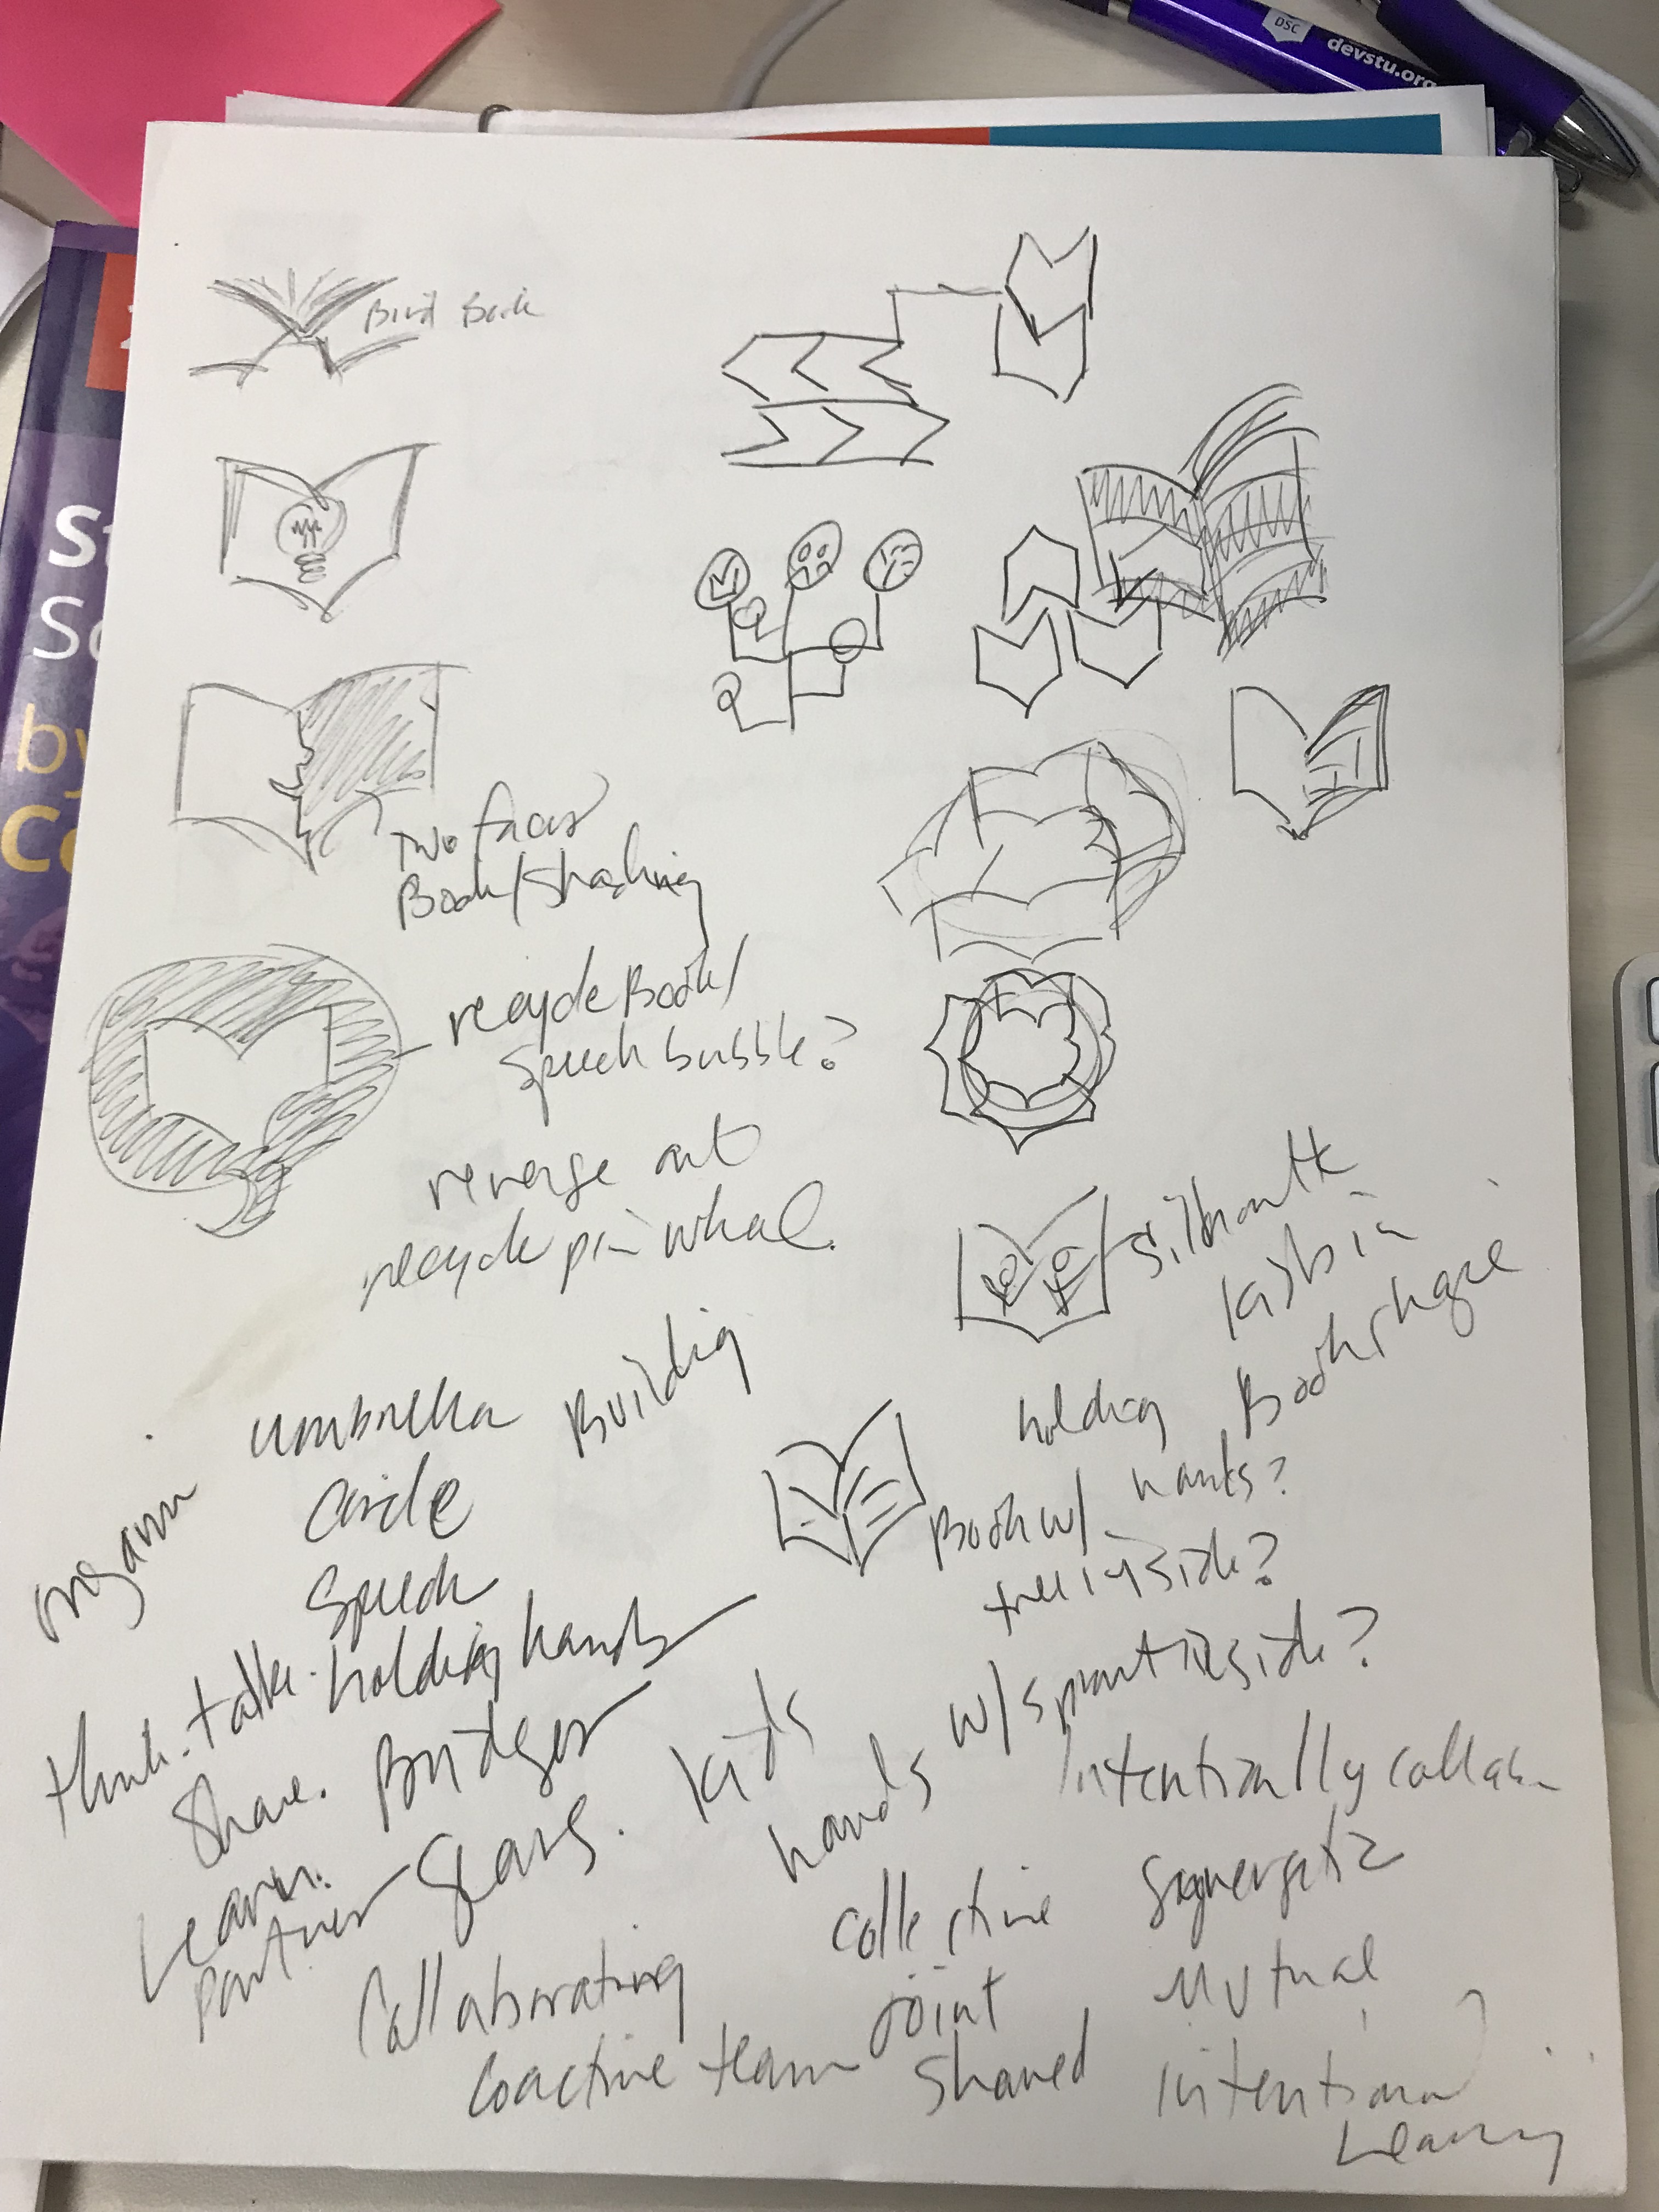 DSC
devstu.org
St
So
by
Co
Bird Book
Two faces
Book/shading
recycle Book/
speech bubble?
reverse out
recycle pinwheel.
Silhouette
Kids in
Book shape
umbrella Building
Circle
Speech
holding
Book w/ hands?
tree inside?
think-talk. holding hands
Share. Bridges
Learn.
partner Gears. Kids
hands w/sprout inside?
Intentionally collab
Collaborating collective Synergetic
Coactive team joint Mutual
Shared Intentional
Learning